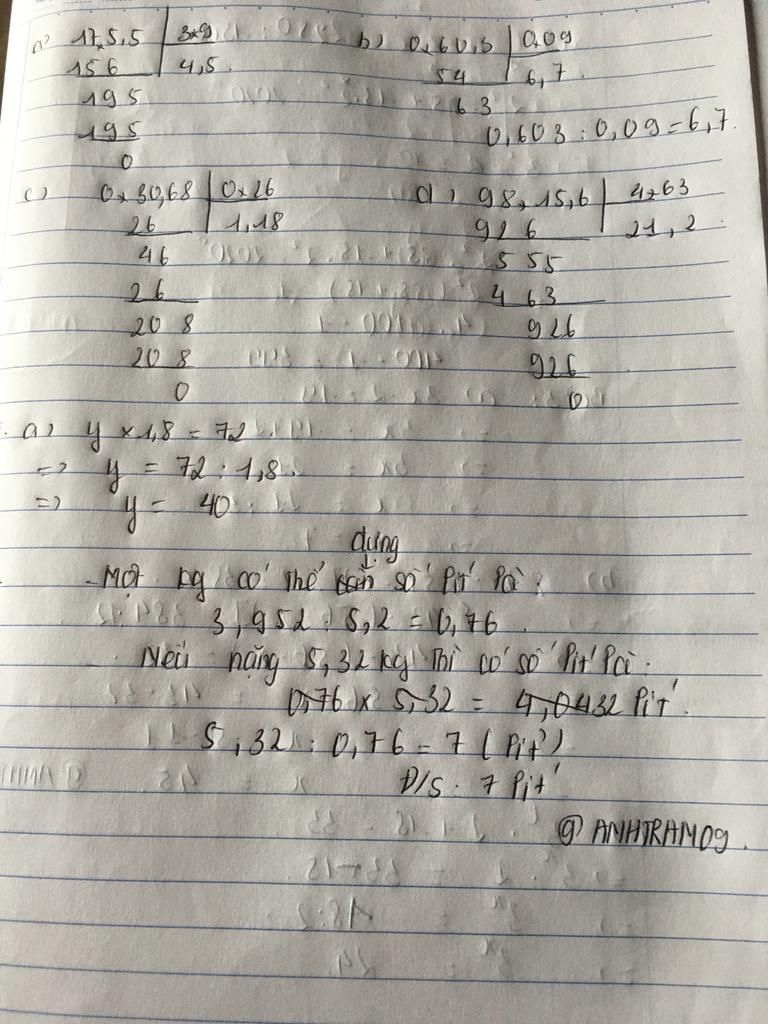 a) 17,5,5 | 3,9 b) 0,60,3 | 0,09
156 4,5 54 6,7
195 63
195 0,603 : 0,09 = 6,7.
0
c) 0,30,68 | 0,26 d) 98,15,6 | 4,63
26 1,18 926 21,2
46 5 55
26 4 63
20 8 926
20 8 926
0 0
a) y x 1,8 = 72
=> y = 72 : 1,8.
=> y = 40
dụng
- Một kg có thể số Pít Pà:
3,952 : 5,2 = 0,76.
Nếu nặng 5,32 kg thì có số Pít Pà:
0,76 x 5,32 = 4,0432 Pít.
5,32 : 0,76 = 7 (Pít)
Đ/S: 7 Pít
@ ANHTRAM09.